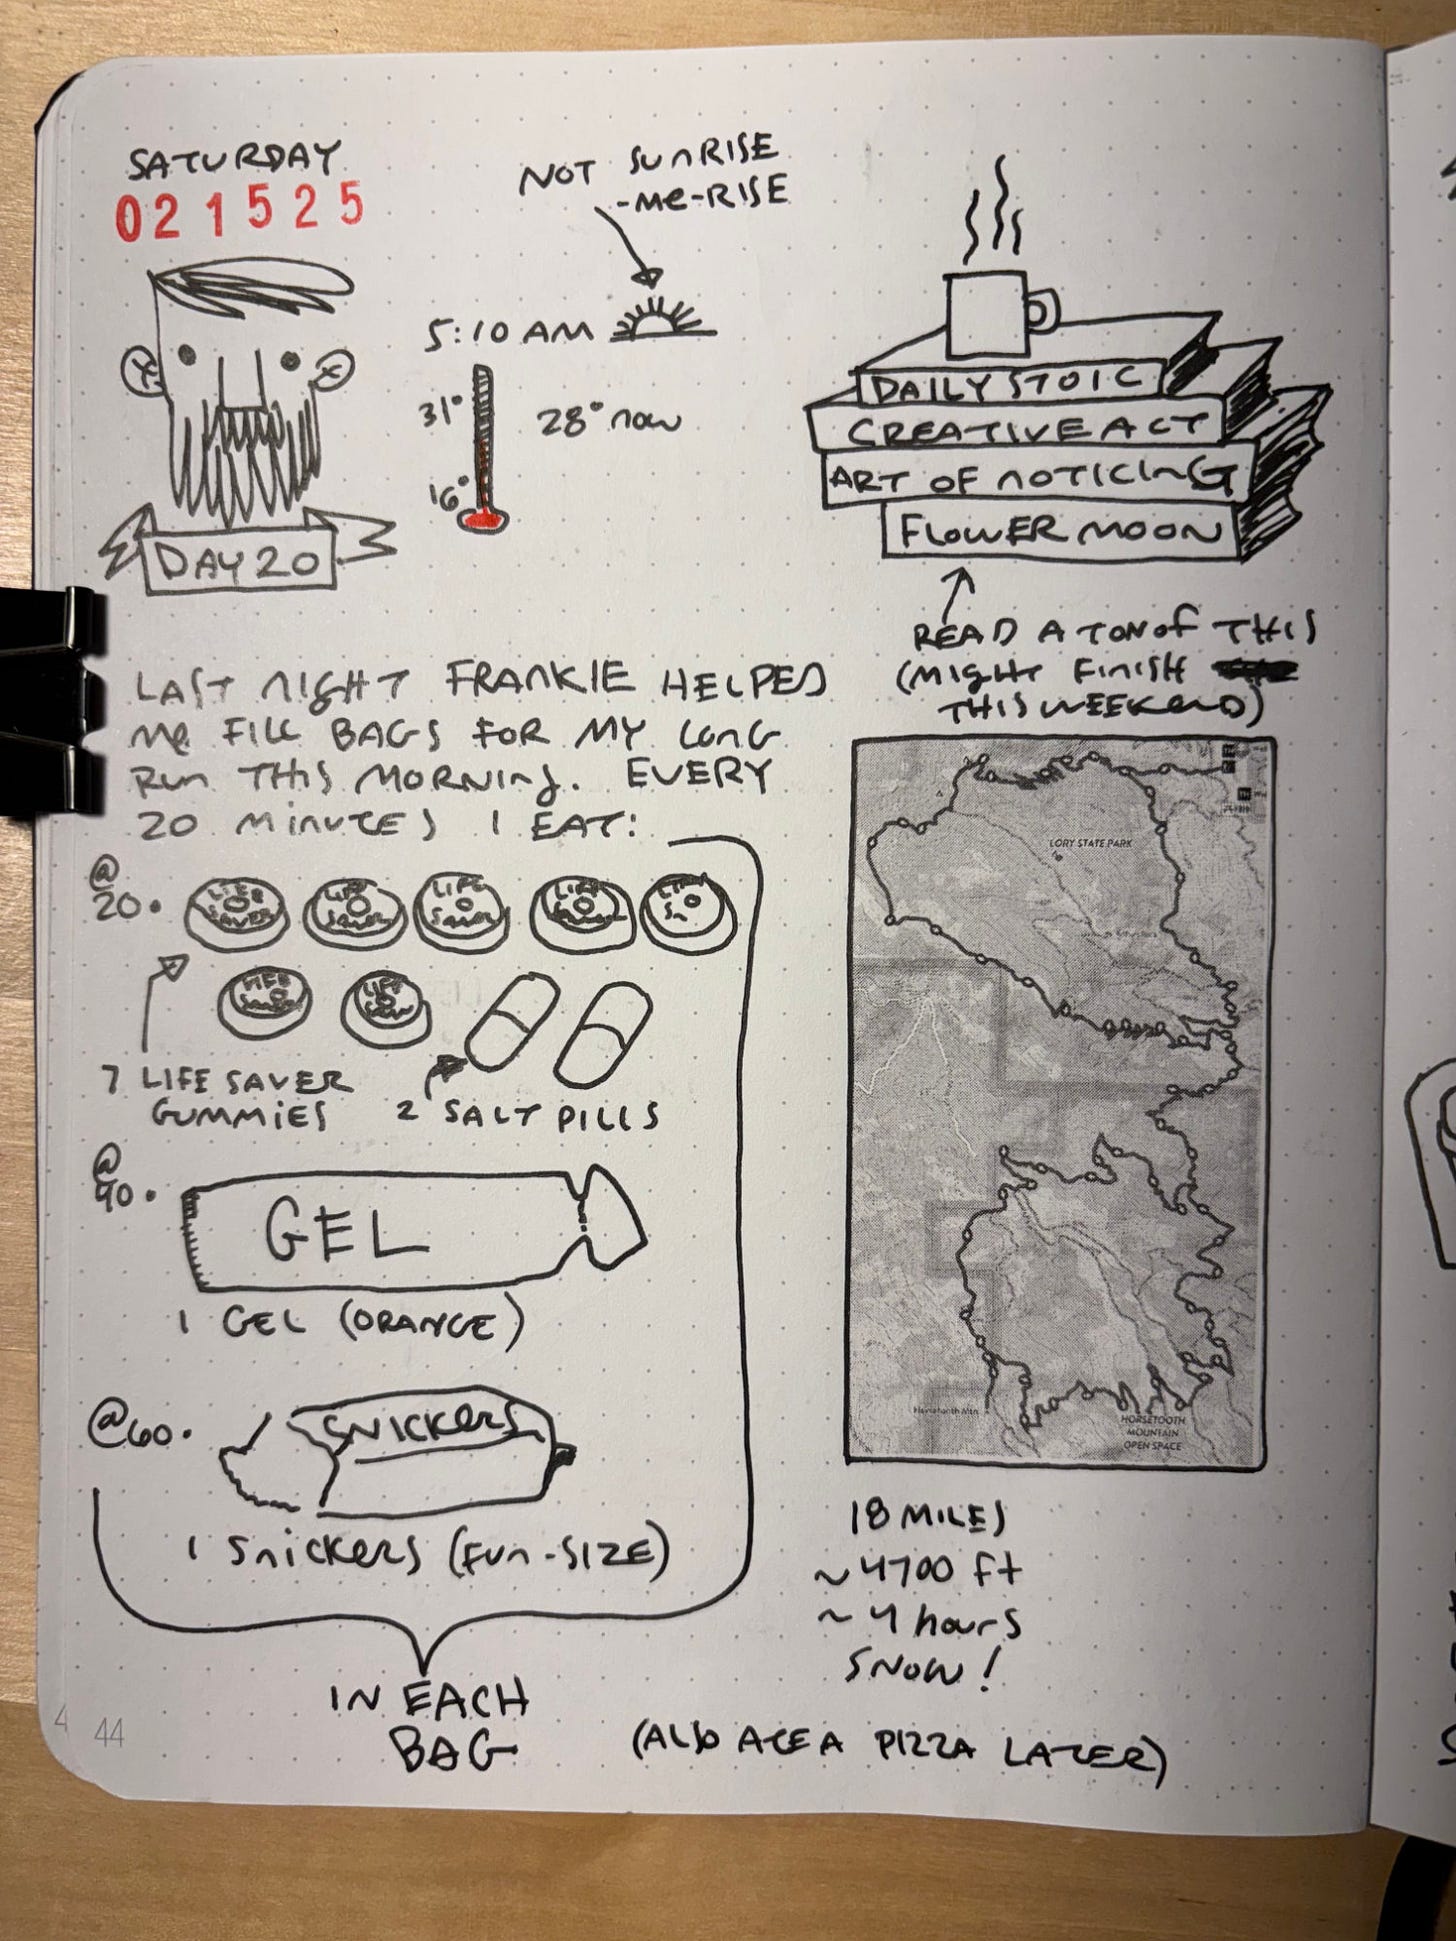 SATURDAY
021525
NOT SUNRISE
-ME-RISE
5:10 AM
31°
28° NOW
16°
DAY 20
DAILY STOIC
CREATIVE ACT
ART OF NOTICING
FLOWER MOON
READ A TON OF THIS
(MIGHT FINISH
THIS WEEKEND)
LAST NIGHT FRANKIE HELPED
ME FILL BAGS FOR MY LONG
RUN THIS MORNING. EVERY
20 MINUTES I EAT:
@
20.
LIFE SAVER
LIFE SAVER
LIFE SAVER
LIFE SAVER
LIFE
LIFE SAVER
LIFE SAVER
7 LIFE SAVER
GUMMIES
2 SALT PILLS
@
40.
GEL
1 GEL (ORANGE)
@60.
SNICKERS
1 SNICKERS (FUN-SIZE)
IN EACH
BAG
LORY STATE PARK
Horsetooth Mtn
HORSETOOTH
MOUNTAIN
OPEN SPACE
18 MILES
~4700 ft
~4 hours
SNOW!
(ALSO ATE A PIZZA LATER)
44